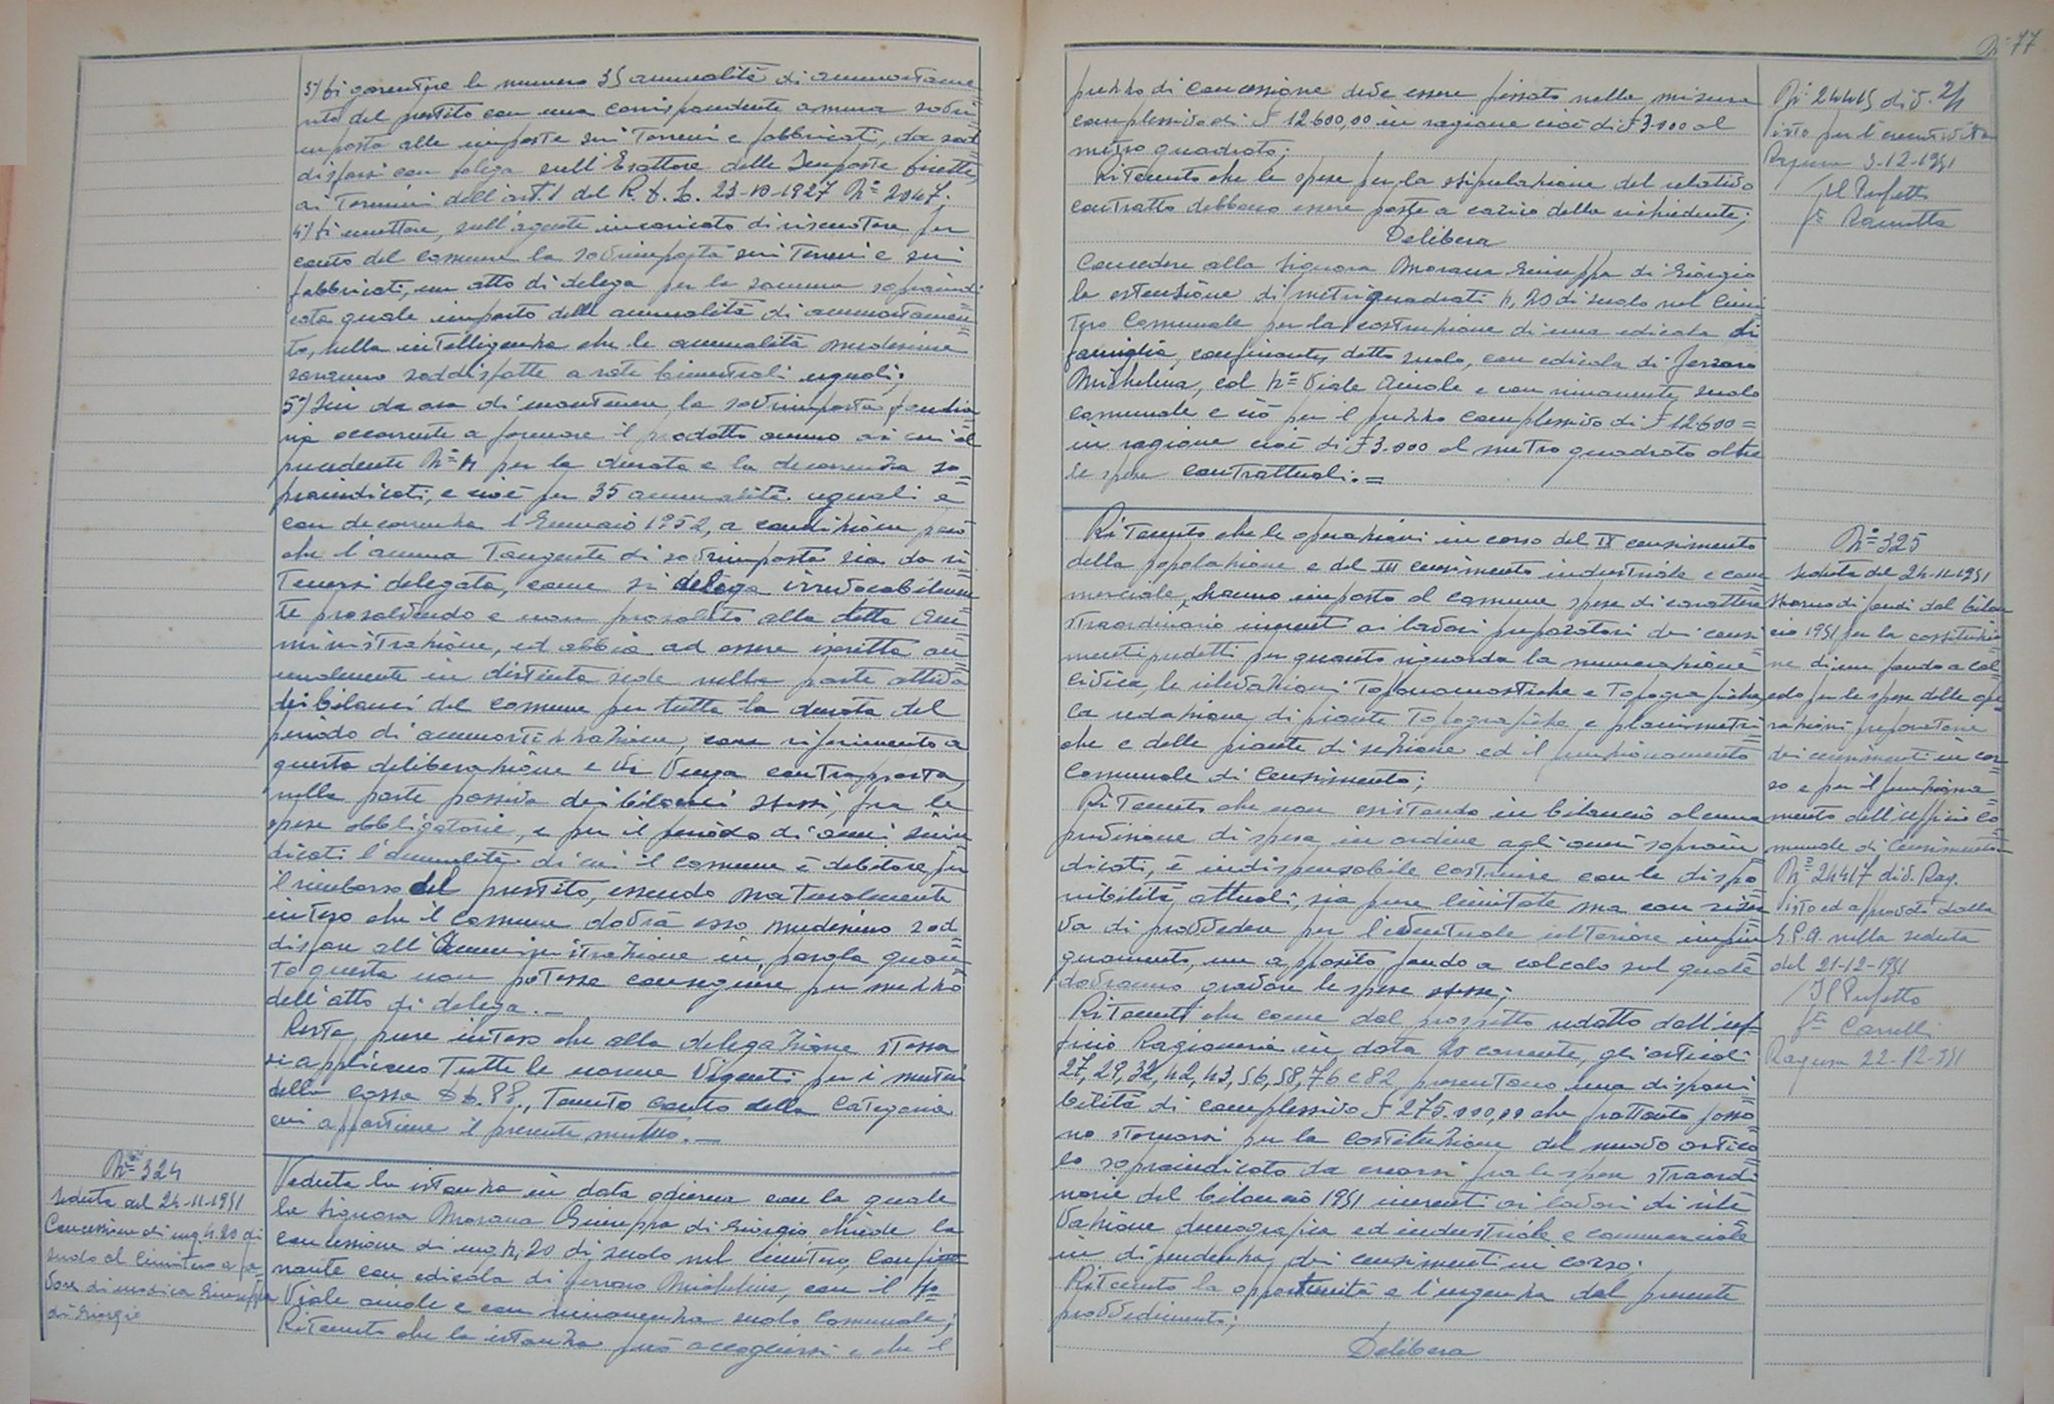 3°) di garentire le numero 35 annualità di ammortame=
nto del prestito con una corrispondente annua sovri=
mposta alle imposte sui Terreni e fabbricati, da sod
disfarsi con delega sull'Esattore delle Imposte Dirette,
ai Termini dell'art. 1 del R.D.L. 23-10-1927 N° 2047;
4°) di emettere, sull'agente incaricato di riscuotere per
conto del Comune la sovrimposta sui Terreni e sui
fabbricati, un atto di delega per la somma sopraindi=
cata quale importo delle annualità di ammortamen=
to, nella intelligenza che le annualità medesime
saranno soddisfatte a rate bimestrali uguali;
5°) Sin da ora di mantenere la sovrimposta fondia=
ria occorrente a formare il prodotto annuo di cui al
precedente N° 4 per la durata e la decorrenza so=
praindicati, e cioè per 35 annualità uguali e
con decorrenza 1 Gennaio 1952, a condizione però
che l'annua Tangente di sovrimposta sia da ri=
tenersi delegata, come si delega irrevocabilmen=
te prosolvendo e non prosoluto alla detta Am=
ministrazione, ed abbia ad essere iscritta an=
nualmente in distinta sede nella parte attiva
dei bilanci del Comune per tutta la durata del
periodo di ammortizzazione, con riferimento a
questa deliberazione e vi venga contrapposta,
nella parte passiva dei bilanci stessi, fra le
spese obbligatorie, e per il periodo di anni suin=
dicati l'annualità di cui il Comune è debitore per
il rimborso del prestito, essendo naturalmente
inteso che il Comune dovrà esso medesimo sod=
disfare all'Amministrazione in parola quan=
to questa non potesse conseguire per mezzo
dell'atto di delega.—
Resta, pure inteso che alla delegazione stessa
si applicano Tutte le norme Vigenti per i mutui
della Cassa DD.PP., Tenuto conto della Categoria
cui appartiene il presente mutuo.—
N° 324
Seduta del 24-11-1951
Concessione di mq. 4.20 di
suolo al Cimitero a fa=
vore di Modica Giuseppa
di Giorgio
Veduta la istanza in data odierna con la quale
la Signora Morana Giuseppa di Giorgio chiede la
concessione di mq. 4,20 di suolo nel Cimitero, confi=
nante con edicola di Ferraro Michelina, con il 4°
Viale ainole e con rimanenza suolo Comunale;
Ritenuto che la istanza può accogliersi e che il
N° 77
prezzo di concessione deve essere fissato nella misura
complessiva di £ 12.600,00 in ragione cioè di £ 3.000 al
metro quadrato;
Ritenuto che le spese per la stipulazione del relativo
contratto debbono essere poste a carico della richiedente;
Delibera
Concedere alla Signora Morana Giuseppa di Giorgio
la estensione di metri quadrati 4,20 di suolo nel Cimi=
tero Comunale per la costruzione di una edicola di
famiglia, confinante, detto suolo, con edicola di Ferraro
Michelina, col 4° Viale Ainole e con rimanente suolo
comunale e ciò per il prezzo complessivo di £ 12.600=
in ragione cioè di £ 3.000 al metro quadrato oltre
le spese contrattuali.=
N° 24415 div. 2/1
Visto per l'esecutività
Ragusa 3-12-1951
Il Prefetto
Ritenuto che le operazioni in corso del IX censimento
della popolazione e del III censimento industriale e com=
merciale, hanno imposto al comune spese di carattere
straordinario inerenti ai lavori preparatori dei censi=
menti predetti per quanto riguarda la numerazione
civica, le rilevazioni Toponomastiche e Topografiche,
la redazione di piante Topografiche e planimetri=
che e delle piante di sezione ed il funzionamento
Comunale di Censimento;
Ritenuto che non esistendo in bilancio alcuna
previsione di spesa in ordine agli oneri soprain=
dicati, è indispensabile costruire con le dispo=
nibilità attuali, sia pure limitate ma con riser=
va di provvedere per l'eventuale ulteriore impin=
guamento, un apposito fondo a calcolo sul quale
dovranno gravare le spese stesse;
Ritenuto che come dal prospetto redatto dall'Uf=
ficio Ragioneria in data 20 corrente, gli articoli
27, 29, 32, 42, 43, 56, 58, 76 e 82, presentano una disponi=
bilità di complessivo £ 275.000,00 che frattanto posso=
no stornarsi per la costituzione del nuovo artico=
lo sopraindicato da crearsi fra le spese straordi=
narie del bilancio 1951 inerenti ai lavori di rile=
vazione demografica ed industriale e commerciale
in dipendenza dei censimenti in corso;
Ritenuto la opportunità e l'urgenza del presente
provvedimento;
Delibera
N° 325
Seduta del 24-11-1951
Storno di fondi dal bilan=
cio 1951 per la costituzio=
ne di un fondo a cal=
colo per le spese delle ope=
razioni preparatorie
dei censimenti in cor=
so e per il funziona=
mento dell'ufficio co=
munale di Censimento
N° 24417 div. Rag.
Visto ed approvato dalla
G.P.A. nella seduta
del 21-12-1951
Il Prefetto
Ragusa 22-12-951